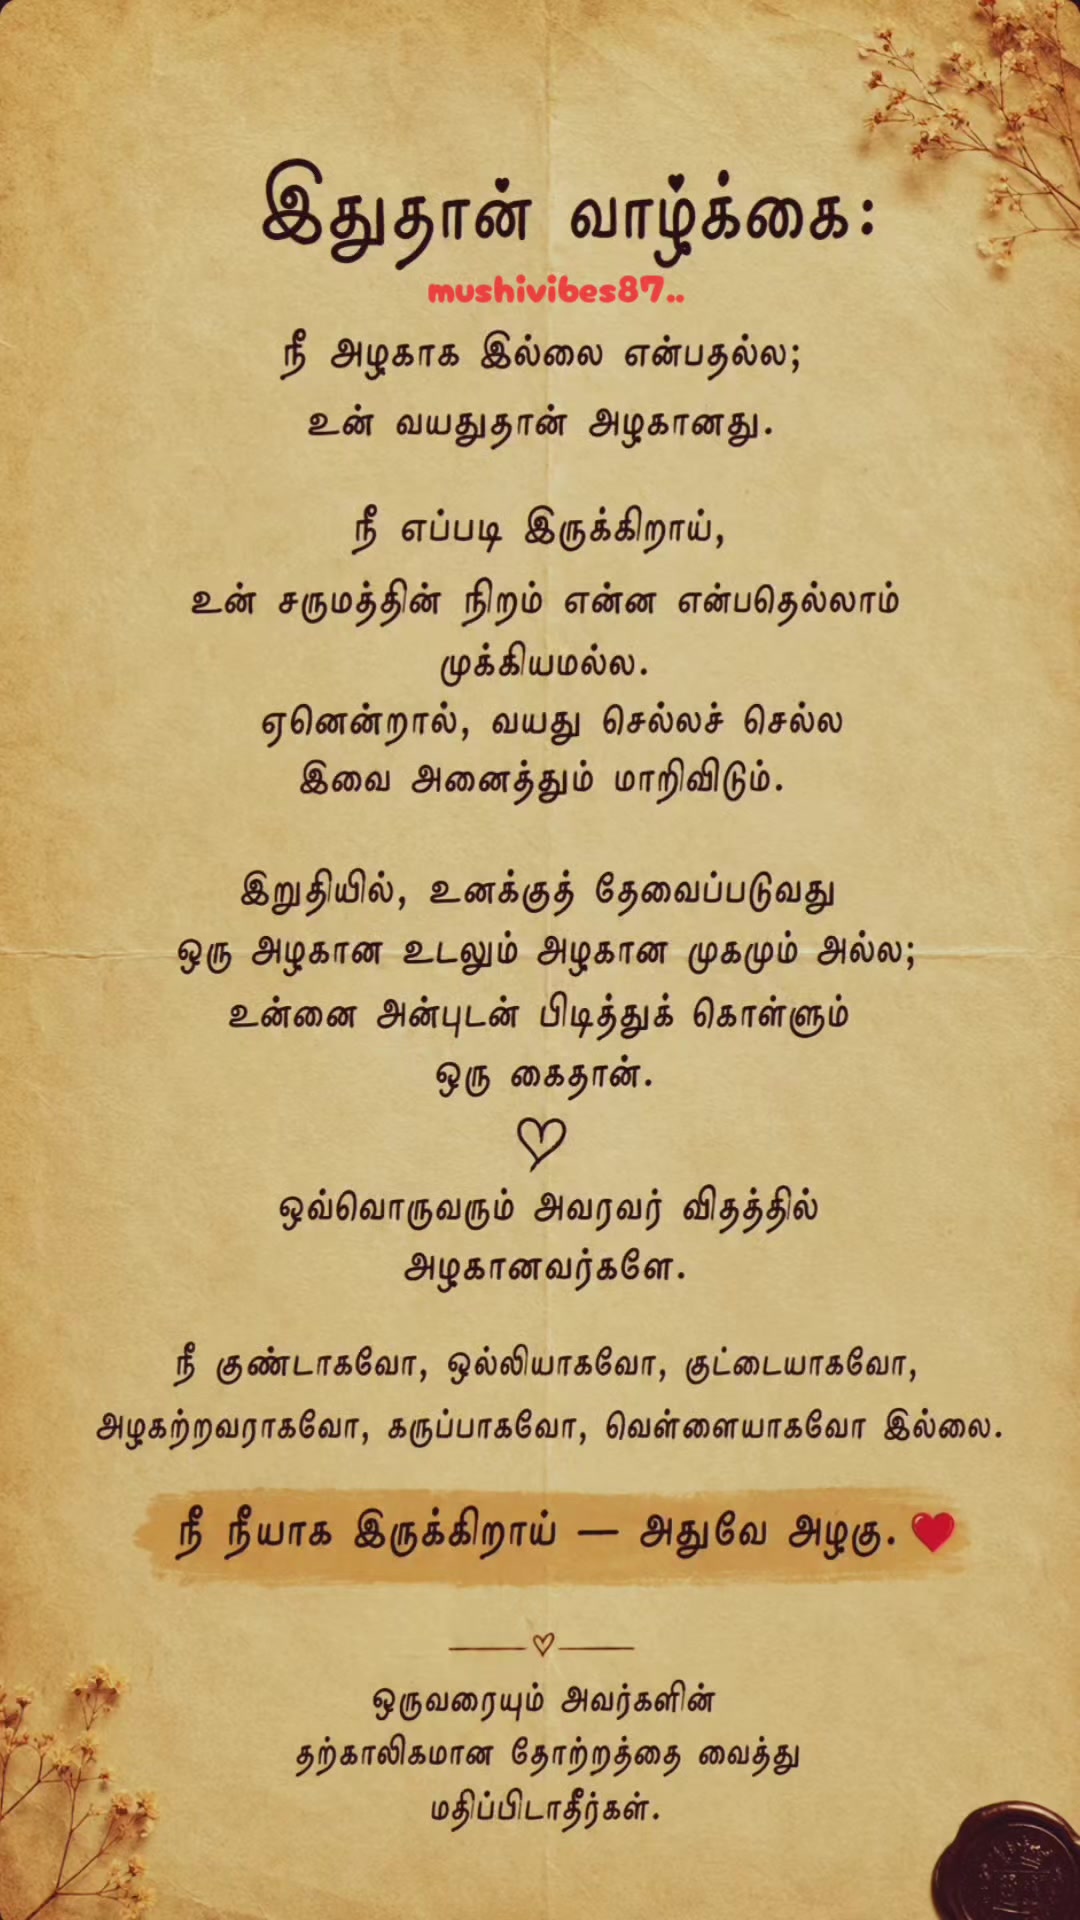 இதுதான் வாழ்க்கை:
mushivibes87..
நீ அழகாக இல்லை என்பதல்ல;
உன் வயதுதான் அழகானது.
நீ எப்படி இருக்கிறாய்,
உன் சருமத்தின் நிறம் என்ன என்பதெல்லாம்
முக்கியமல்ல.
ஏனென்றால், வயது செல்லச் செல்ல
இவை அனைத்தும் மாறிவிடும்.
இறுதியில், உனக்குத் தேவைப்படுவது
ஒரு அழகான உடலும் அழகான முகமும் அல்ல;
உன்னை அன்புடன் பிடித்துக் கொள்ளும்
ஒரு கைதான்.
ஒவ்வொருவரும் அவரவர் விதத்தில்
அழகானவர்களே.
நீ குண்டாகவோ, ஒல்லியாகவோ, குட்டையாகவோ,
அழகற்றவராகவோ, கருப்பாகவோ, வெள்ளையாகவோ இல்லை.
நீ நீயாக இருக்கிறாய் — அதுவே அழகு. ❤️
ஒருவரையும் அவர்களின்
தற்காலிகமான தோற்றத்தை வைத்து
மதிப்பிடாதீர்கள்.